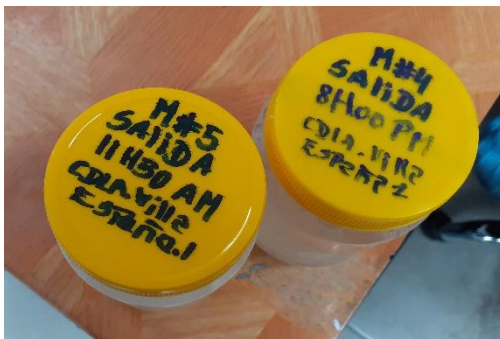 M#5
SALiDA
11H30 AM
CDLA.Villa
España.1
M#4
SALiDA
8H00 PM
CDLA.Villa
España 1